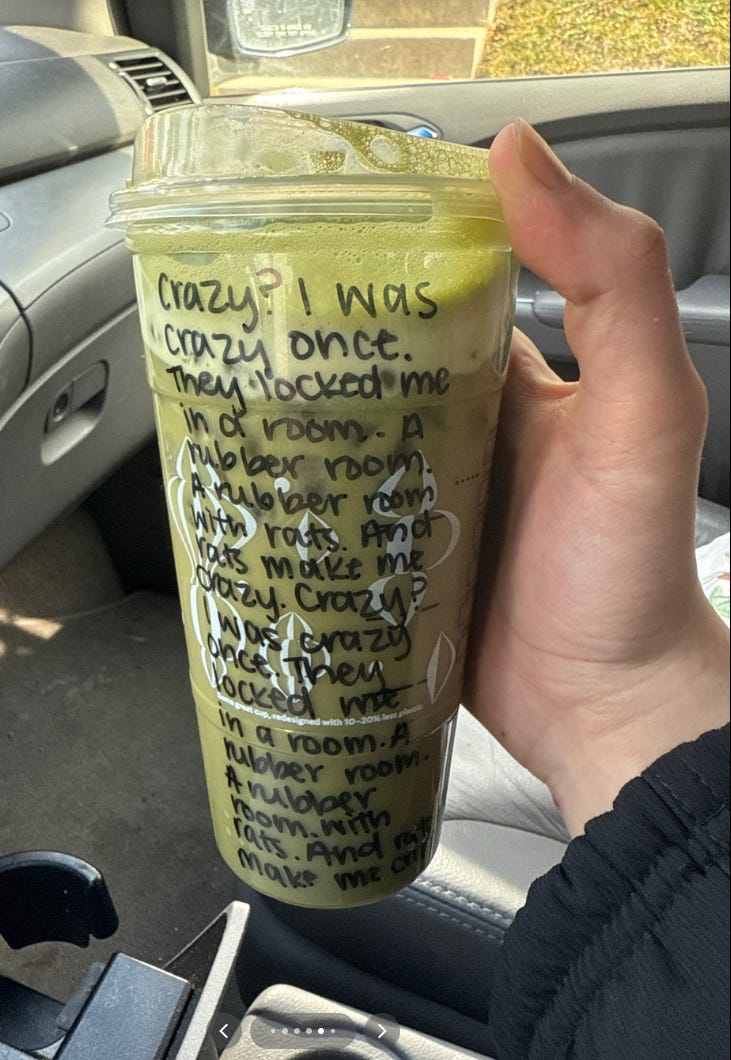 Crazy? I was
crazy once.
They locked me
in a room. A
rubber room.
A rubber room
with rats. And
rats make me
crazy. Crazy?
I was crazy
once. They
locked me
great cup, redesigned with 10–20% less plastic.
in a room. A
rubber room.
A rubber
room. with
rats. And rats
make me